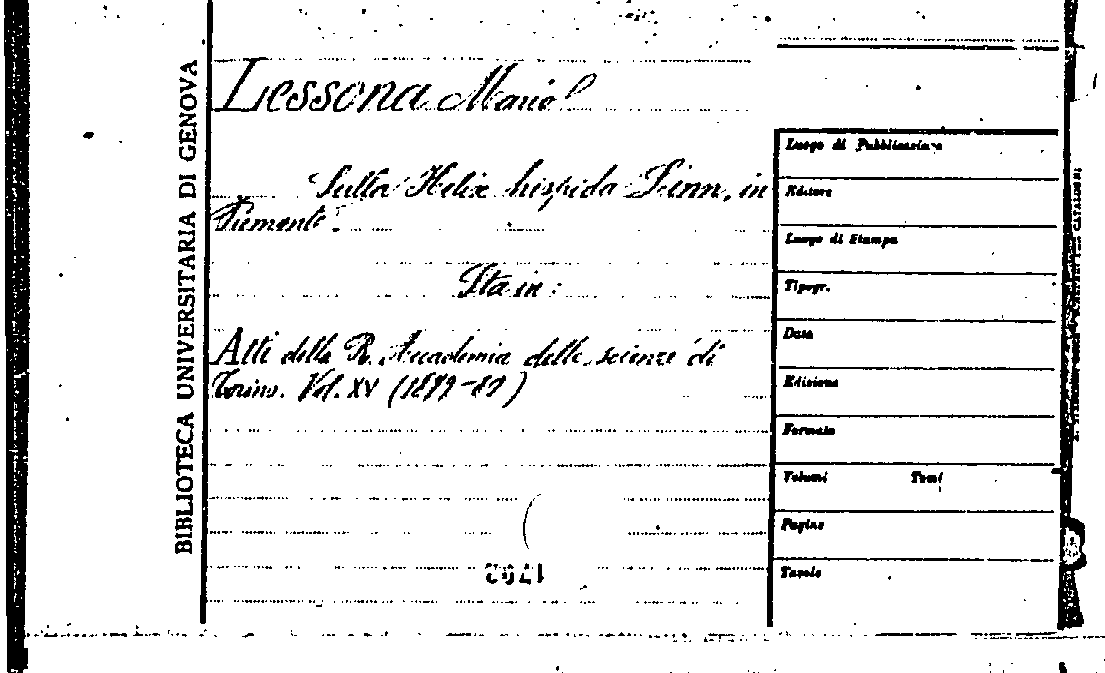 BIBLIOTECA UNIVERSITARIA DI GENOVA
Lessona Mario
Sulla Helix hispida Linn, in
Piemonte.
Sta in:
Atti della R. Accademia delle scienze di
Torino. Vol. XV (1879-80)
Luogo di Pubblicazione
Editore
Luogo di Stampa
Tipogr.
Data
Edizione
Formato
Volumi Tomi
Pagine
Tavole